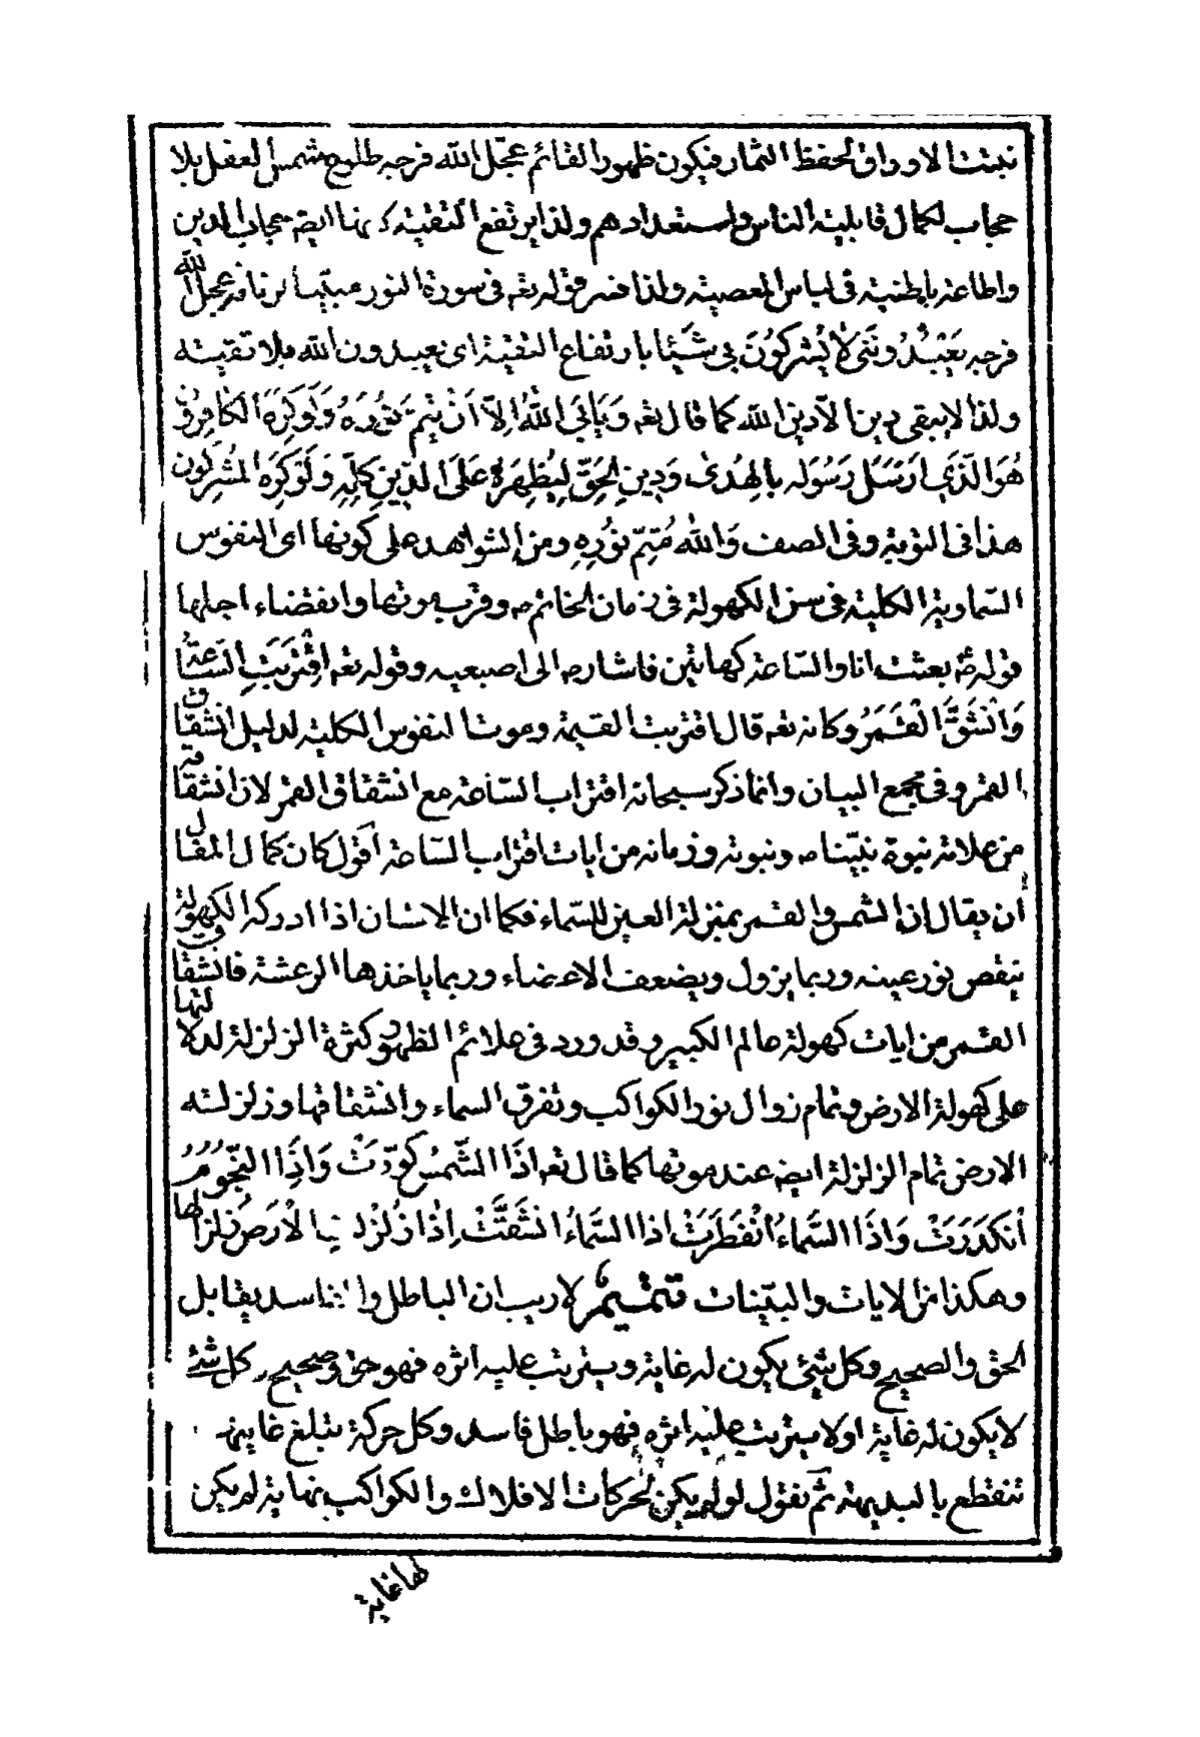 نبتت الاوراق لحفظ الثمار فيكون ظهور القائم عجّل الله فرجه طلوع شمس العقل بلا
حجاب لكمال قابلية الناس واستعدادهم ولذا يرتفع التقية لانها ايضا حجاب الدين
واطاعة باطنية فى لباس المعصية ولذا فسر قوله تعه فى سورة النور مبتهما لزمانه عجل الله
فرجه يَعْبُدُونَنى لاٰ يُشركُونَ بى شَيئا بارتفاع التقية اى تعبدون الله بلا تقية
ولذا لا يبقى دين الّا دين الله كما قال تعه وَيَاْبَى اللّٰهُ اِلّا اَنْ يُتِمَّ نُورَهُ وَلَوْ كَرِهَ الكافِرُونَ
هُوَ الَّذى اَرْسَلَ رَسُولَه بِالهُدى وَدينِ الحَقّ لِيُظهِرَهُ عَلَى الدّينِ كلِّهِ وَلَوْ كَرِهَ المُشرِكُون
هذا فى التوبة وفى الصف وَاللّٰهُ مُتِمّ نُورِهِ ومن الشواهد على كونها اى النفوس
السّماوية الكلية فى سن الكهولة فى زمان الخاتم ص وقرب موتها وانقضاء اجلها
قوله ص بعثت انا والسّاعة كهاتين فاشار ص الى اصبعيه وقوله تعه اِقْتَرَبَتِ السّاعَةُ
وَانْشَقَّ الْقَمَرُ وكانه تعه قال اقتربت القيمة وموت النفوس الكلية لدليل انشقاق
القمر وفى مجمع البيان وانما ذكر سبحانه اقتراب السّاعة مع انشقاق القمر لان انشقاقه
من علامة نبوة نبيّنا ص ونبوته وزمانه من ايات اقتراب السّاعة اقول كان كمال المقال
أن يقال إن الشمس والقمر بمنزلة العين للسّماء فكما ان الانسان اذا ادركه الكهولة
ينقص نور عينه وربما يزول ويضعف الاعضاء وربما ياخذها الرعشة فانشقاق
القمر من ايات كهولة عالم الكبير وقد ورد فى علائم الظهور كثرة الزلزلة لدلالتها
على كهولة الارض وتمام زوال نور الكواكب وتفرق السماء وانشقاقها وزلزلة
الارض تمام الزلزلة ايضا عند موتها كما قال تعه اذَا الشَّمسُ كُوِّرَتْ وَاِذَا النّجُومُ
انكَدَرَتْ وَاِذَا السَّماءُ انْفَطَرَتْ اذا السَّماءُ انشَقَّتْ اِذا زُلْزِلَتِ الْأَرضُ زِلزالها
وهكذا من الايات والبيّنات تتميمٌ لا ريب ان الباطل والفاسد يقابل
الحق والصحيح وكل شئ يكون له غاية ويترتب عليه اثره فهو حق وصحيح وكل شئ
لا يكون له غاية او لا يترتب عليه اثره فهو باطل فاسد وكل حركة تبلغ غايتها
تنقطع بالبديهة ثمّ نقول لو لم يكن لحركات الافلاك والكواكب نهاية لم يكن
لها غاية